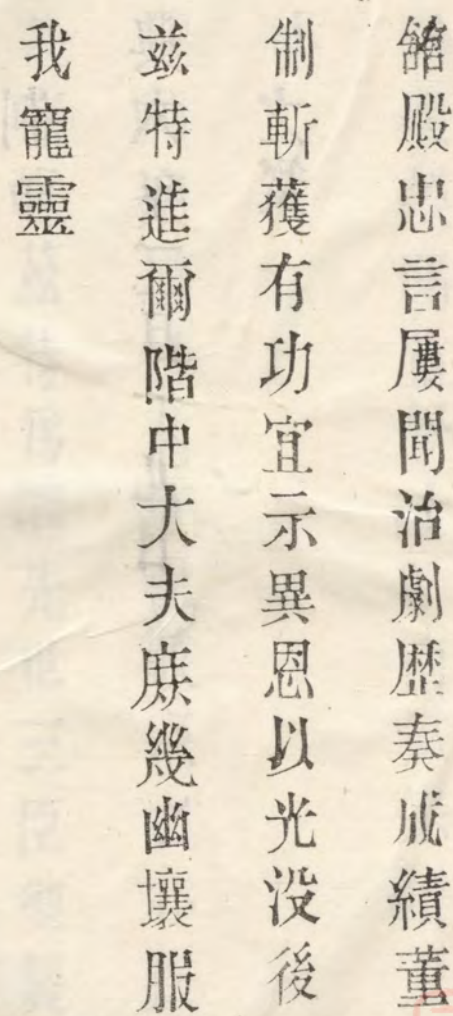 舘殿忠言屢聞治劇歴奏成績董
制斬獲有功宜示異恩以光没後
兹特進爾階中大夫庻幾幽壤服
我寵靈